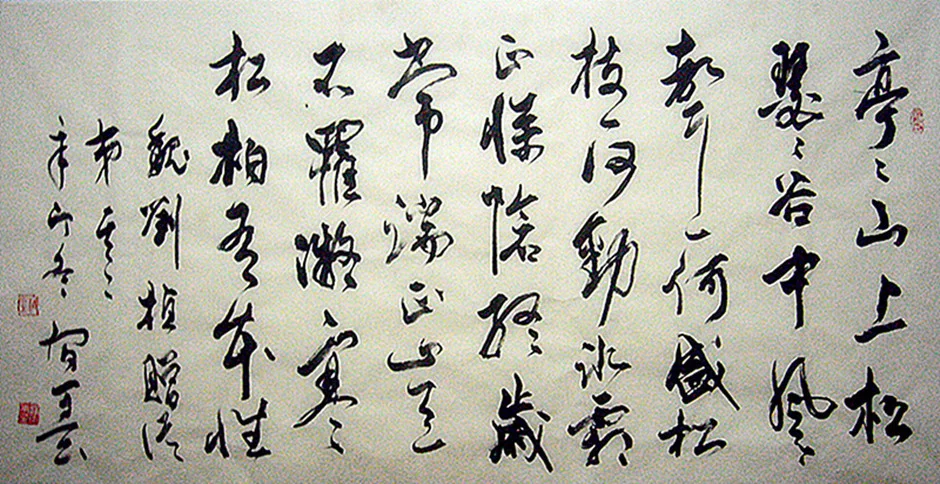 亭〻山上松
瑟〻谷中風〻
聲一何盛松
枝一何勁冰霜
正慘愴終歲
常端正豈
不罹凝寒
松柏有本性
魏劉楨贈從
弟其二
辛卯冬